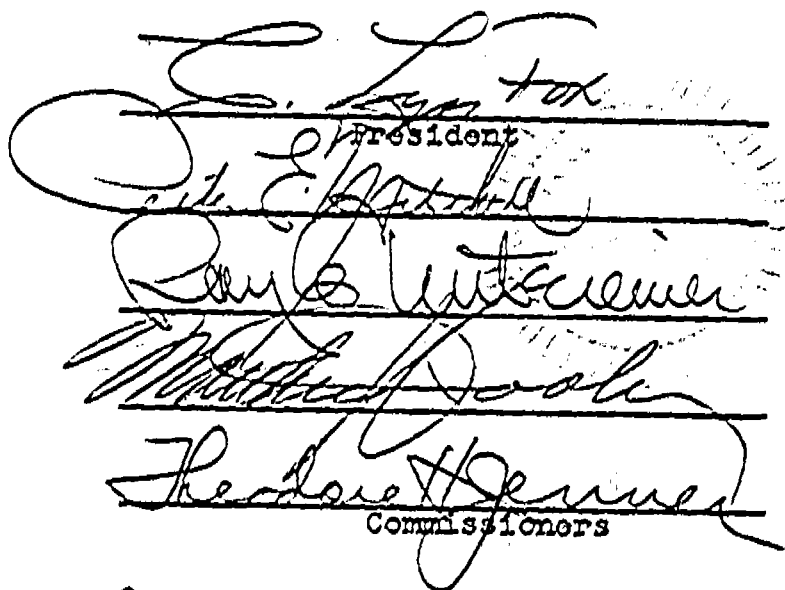 C. Lyn Fox
President
Peter E. Mitchell
Ray E. Untereiner
Matthew J. Dooley
Theodore H. Jenner
Commissioners